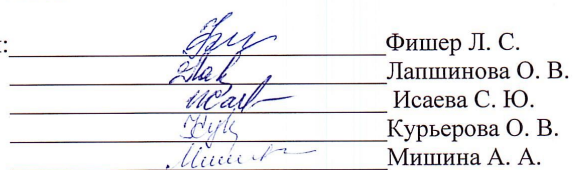 Фишер Л. С.
Лапшинова О. В.
Исаева С. Ю.
Курьерова О. В.
Мишина А. А.